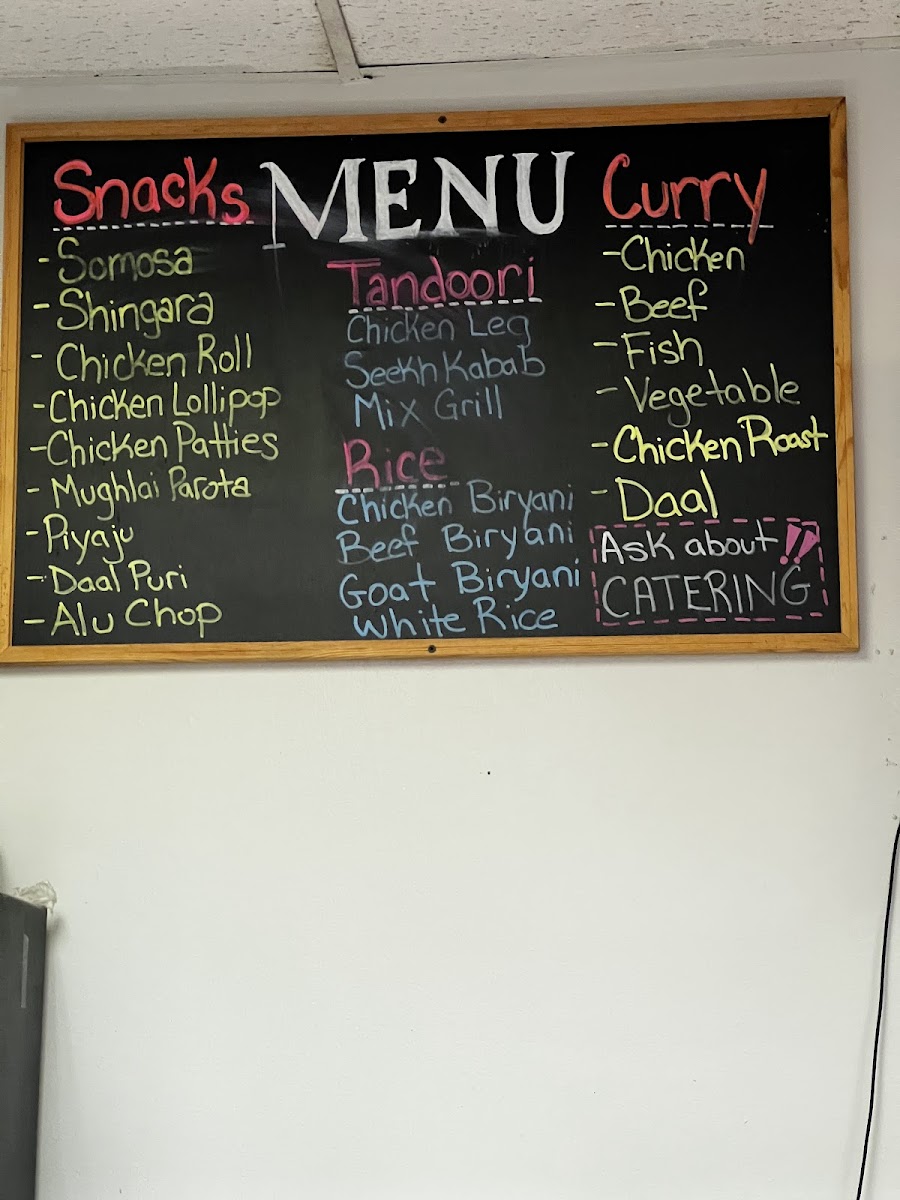 MENU
Snacks
- Somosa
- Shingara
- Chicken Roll
- Chicken Lollipop
- Chicken Patties
- Mughlai Parota
- Piyaju
- Daal Puri
- Alu Chop
Tandoori
Chicken Leg
Seekh Kabab
Mix Grill
Rice
Chicken Biryani
Beef Biryani
Goat Biryani
White Rice
Curry
- Chicken
- Beef
- Fish
- Vegetable
- Chicken Roast
- Daal
Ask about!!
CATERING